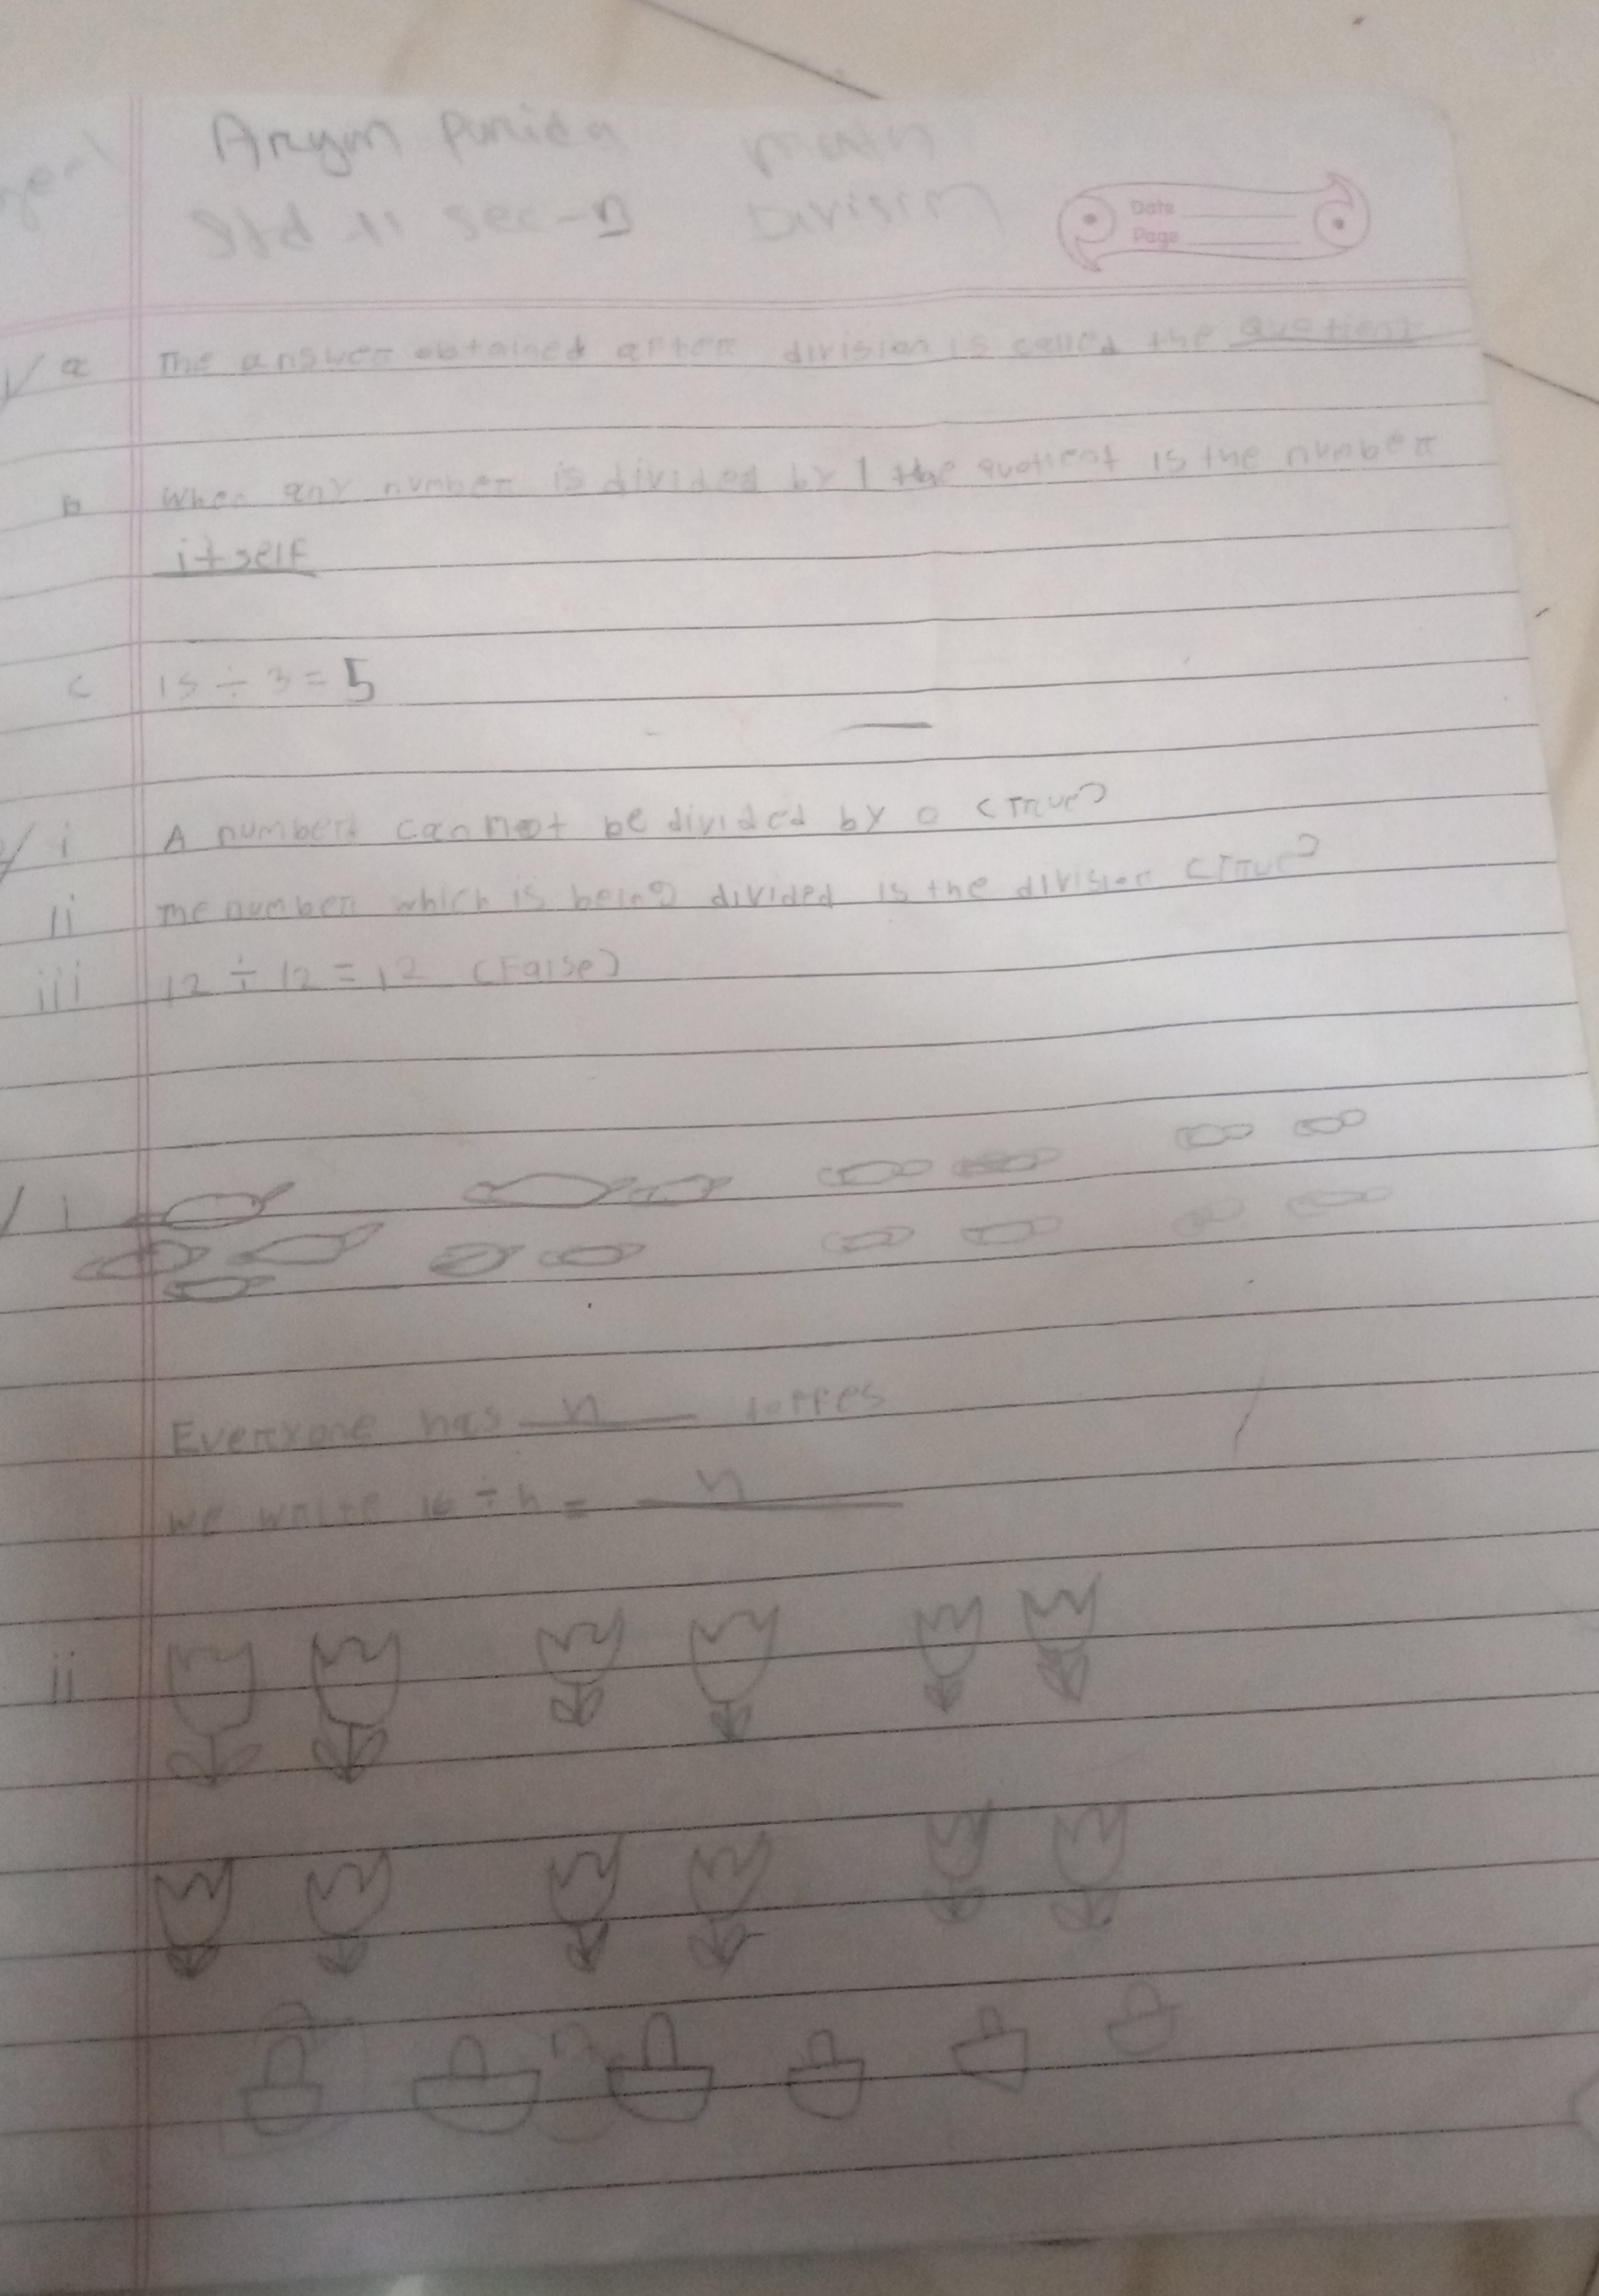 Aryan Parida math
Std II Sec-B Division
Date
Page
1/ a The answer obtained after division is called the quotient
b When any number is divided by 1 the quotient is the number
itself
c 15 ÷ 3 = 5
i A number cannot be divided by 0 (True)
ii The number which is being divided is the division (True)
iii 12 ÷ 12 = 12 (False)
i
Everyone has 4
We write 16 ÷ 4 = 4
ii